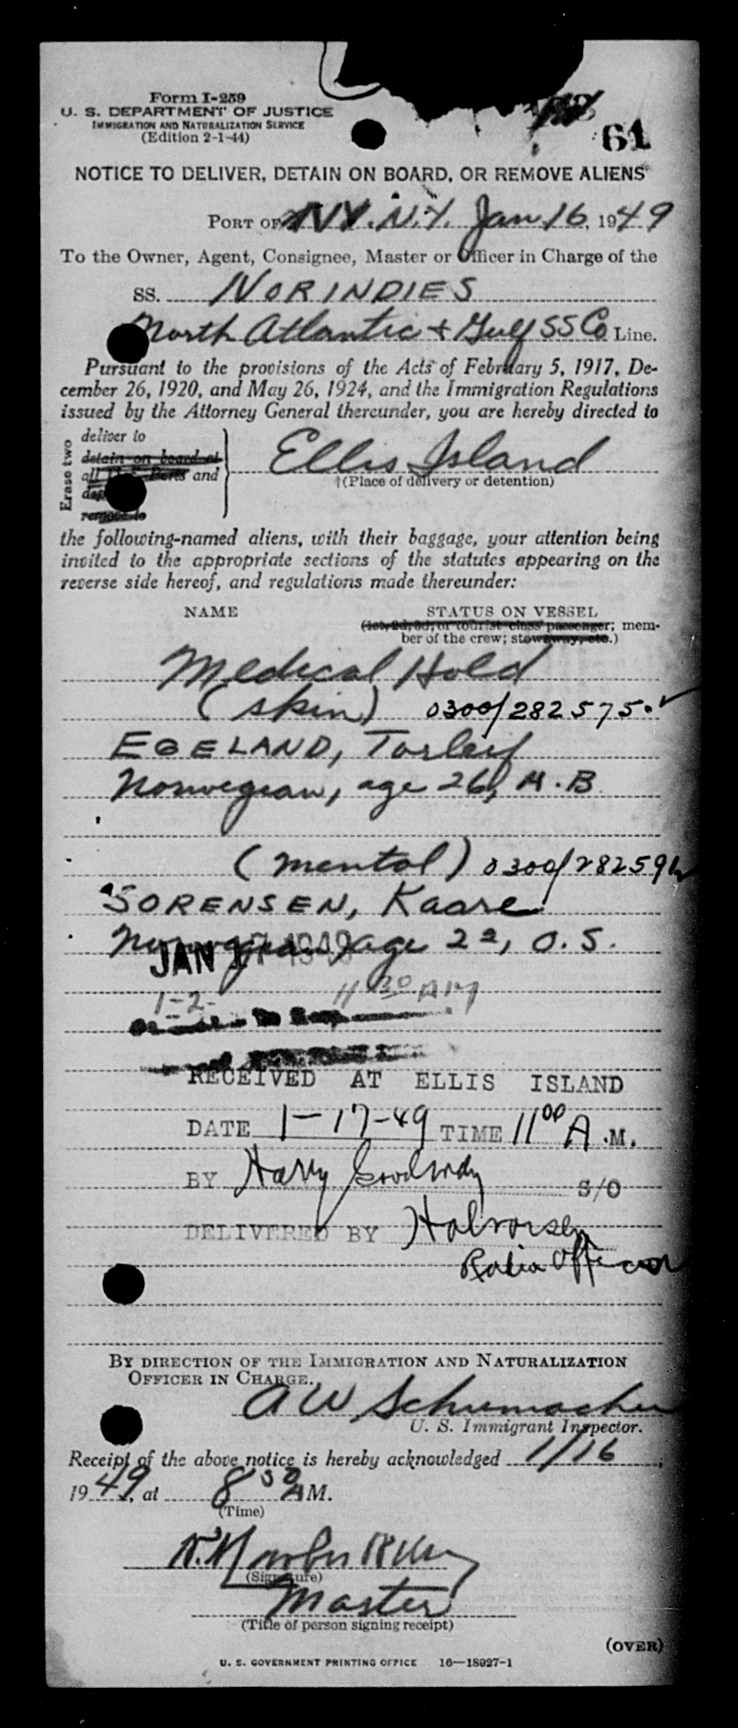 Form I-259
U. S. DEPARTMENT OF JUSTICE
IMMIGRATION AND NATURALIZATION SERVICE
(Edition 2-1-44)
61
NOTICE TO DELIVER, DETAIN ON BOARD, OR REMOVE ALIENS
PORT OF N.Y. N.Y. Jan 16, 1949
To the Owner, Agent, Consignee, Master or Officer in Charge of the
SS. NORINDIES
North Atlantic & Gulf SS Co Line.
Pursuant to the provisions of the Acts of February 5, 1917, De-
cember 26, 1920, and May 26, 1924, and the Immigration Regulations
issued by the Attorney General thereunder, you are hereby directed to
Erase two
deliver to
detain on board at
all U.S. Ports and
remove to
Ellis Island
(Place of delivery or detention)
the following-named aliens, with their baggage, your attention being
invited to the appropriate sections of the statutes appearing on the
reverse side hereof, and regulations made thereunder:
NAME STATUS ON VESSEL
(1st, 2d, 3d, or tourist class passenger; mem-
ber of the crew; stowaway, etc.)
Medical Hold
(skin) 0300/282575
EGELAND, Torleif
Norwegian, age 26, M.B
(mental) 0300/28259
SORENSEN, Kaare
Norwegian, age 22, O.S.
JAN 17 1949
1-2- 11 30 AM
RECEIVED AT ELLIS ISLAND
DATE 1-17-49 TIME 11 00 A.M.
BY Harry S/O
DELIVERED BY Halvorsen
Radio Officer
BY DIRECTION OF THE IMMIGRATION AND NATURALIZATION
OFFICER IN CHARGE.
A W Schumacher
U. S. Immigrant Inspector.
Receipt of the above notice is hereby acknowledged 1/16,
1949, at 8 30 AM.
(Time)
(Signature)
Master
(Title of person signing receipt)
(OVER)
U. S. GOVERNMENT PRINTING OFFICE 16—18927-1